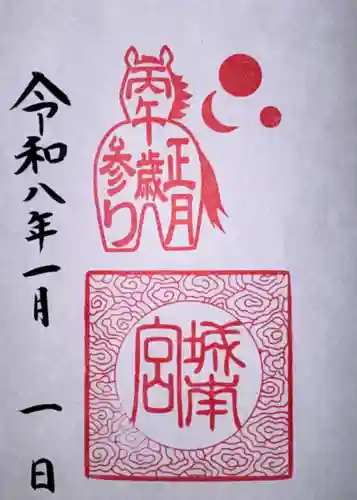 丙午歳
正月
参り
城南
宮
令和八年一月一日